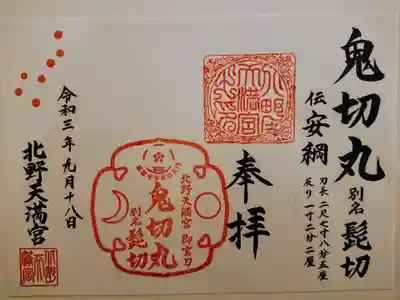 鬼切丸 別名 髭切
伝 安綱
刃長 二尺七寸八分五厘
反り 一寸二分二厘
奉拝
北野天満宮 御宝刀
鬼切丸
別名 髭切
令和三年九月十八日
北野天満宮